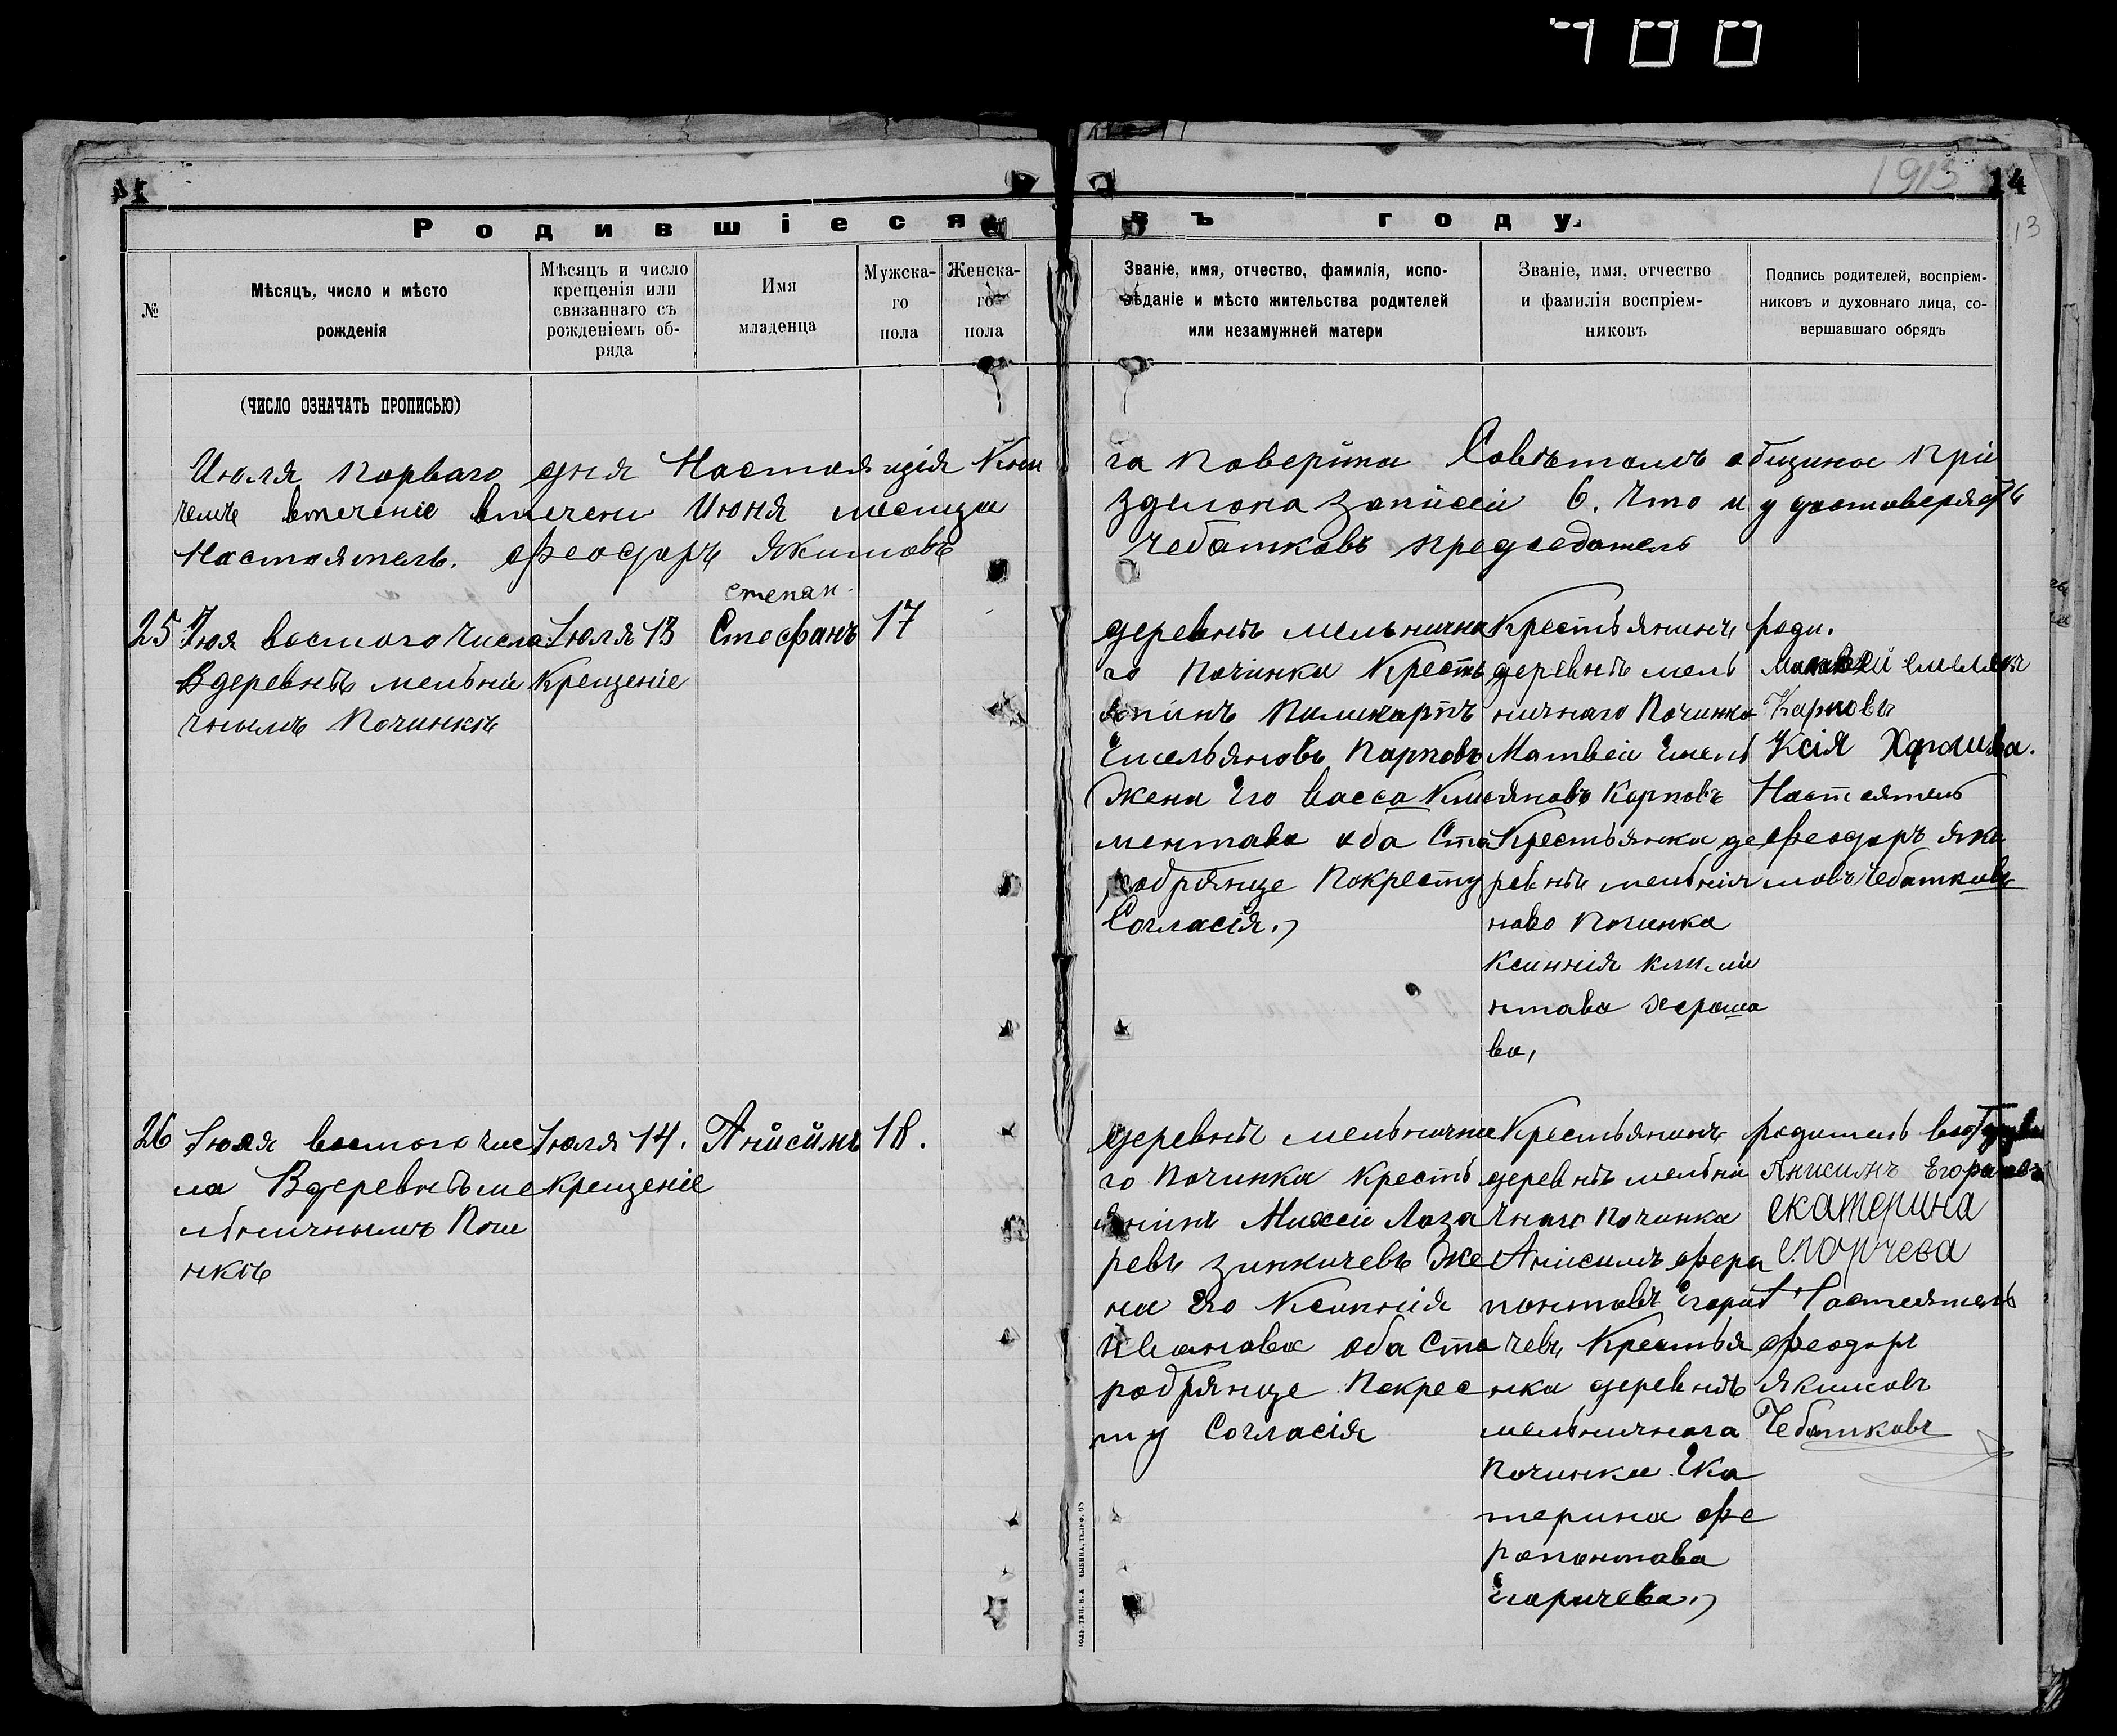 700
1913
14
13
Родившіеся въ году
№
Мѣсяцъ, число и мѣсто
рожденія
Мѣсяцъ и число
крещенія или
связаннаго съ
рожденіемъ об-
ряда
Имя
младенца
Мужска-
го
пола
Женска-
го
пола
Званіе, имя, отчество, фамилія, испо-
вѣданіе и мѣсто жительства родителей
или незамужней матери
Званіе, имя, отчество
и фамилія воспріем-
никовъ
Подпись родителей, воспріем-
никовъ и духовнаго лица, со-
вершавшаго обрядъ
(ЧИСЛО ОЗНАЧАТЬ ПРОПИСЬЮ)
Июля порваго дня Настоящія Кни
га поверина Совѣтомъ общины при
чемъ втеченіе втечени Июня месица
зделона записей 6. что и удостоверяетъ
Настоятель. Феодоръ Якимовъ
Чебатковъ председатель
25
Іюя восмого числа
Вдеревнѣ мельни
чнымъ Починкѣ
Іюля 13
Крещеніе
степан
Стефанъ
17
деревнѣ мельнична
го Починка Кресть
янінъ Поликарпъ
Емельяновъ Карповъ
Жена Его Васса Кли
ментава оба Ста
робрянце Покресту
Согласія.
Крестьянинъ
деревнѣ мель
ничнаго Починка
Матвей Емель
яновъ Карповъ
Крестьянка де
ревнѣ мельнич
наво Починка
Ксиннія клими
нтава хароша
ва,
роди.
Матвей емелян
Карповъ
Ксія Харошва.
Настоятель
Феодоръ Яки
мовъ Чебатковъ
26
Іюля восмого чис
ла Вдеревнѣ ме
льничнымъ Почи
нкѣ
Іюля 14.
крещеніе
Анисимъ
18.
деревнѣ мельнична
го Починка Кресть
янінъ Михей Лаза
ревъ зинкичевъ Же
на Его Ксинния
Ивановва оба Ста
робрянце Покрес
ту Согласія
Крестьянинъ
деревнѣ мельни
чнаго Починка
Анисимъ фера
понтовъ Егори
чевъ Крестья
нка деревнѣ
мельничнага
Починка Ека
терина фе
рапонтава
Егаричева.
родитель
Анисимъ Егоричевъ
екатерина
егоричева
Настоятель
Феодоръ
Якимовъ
Чебатковъ